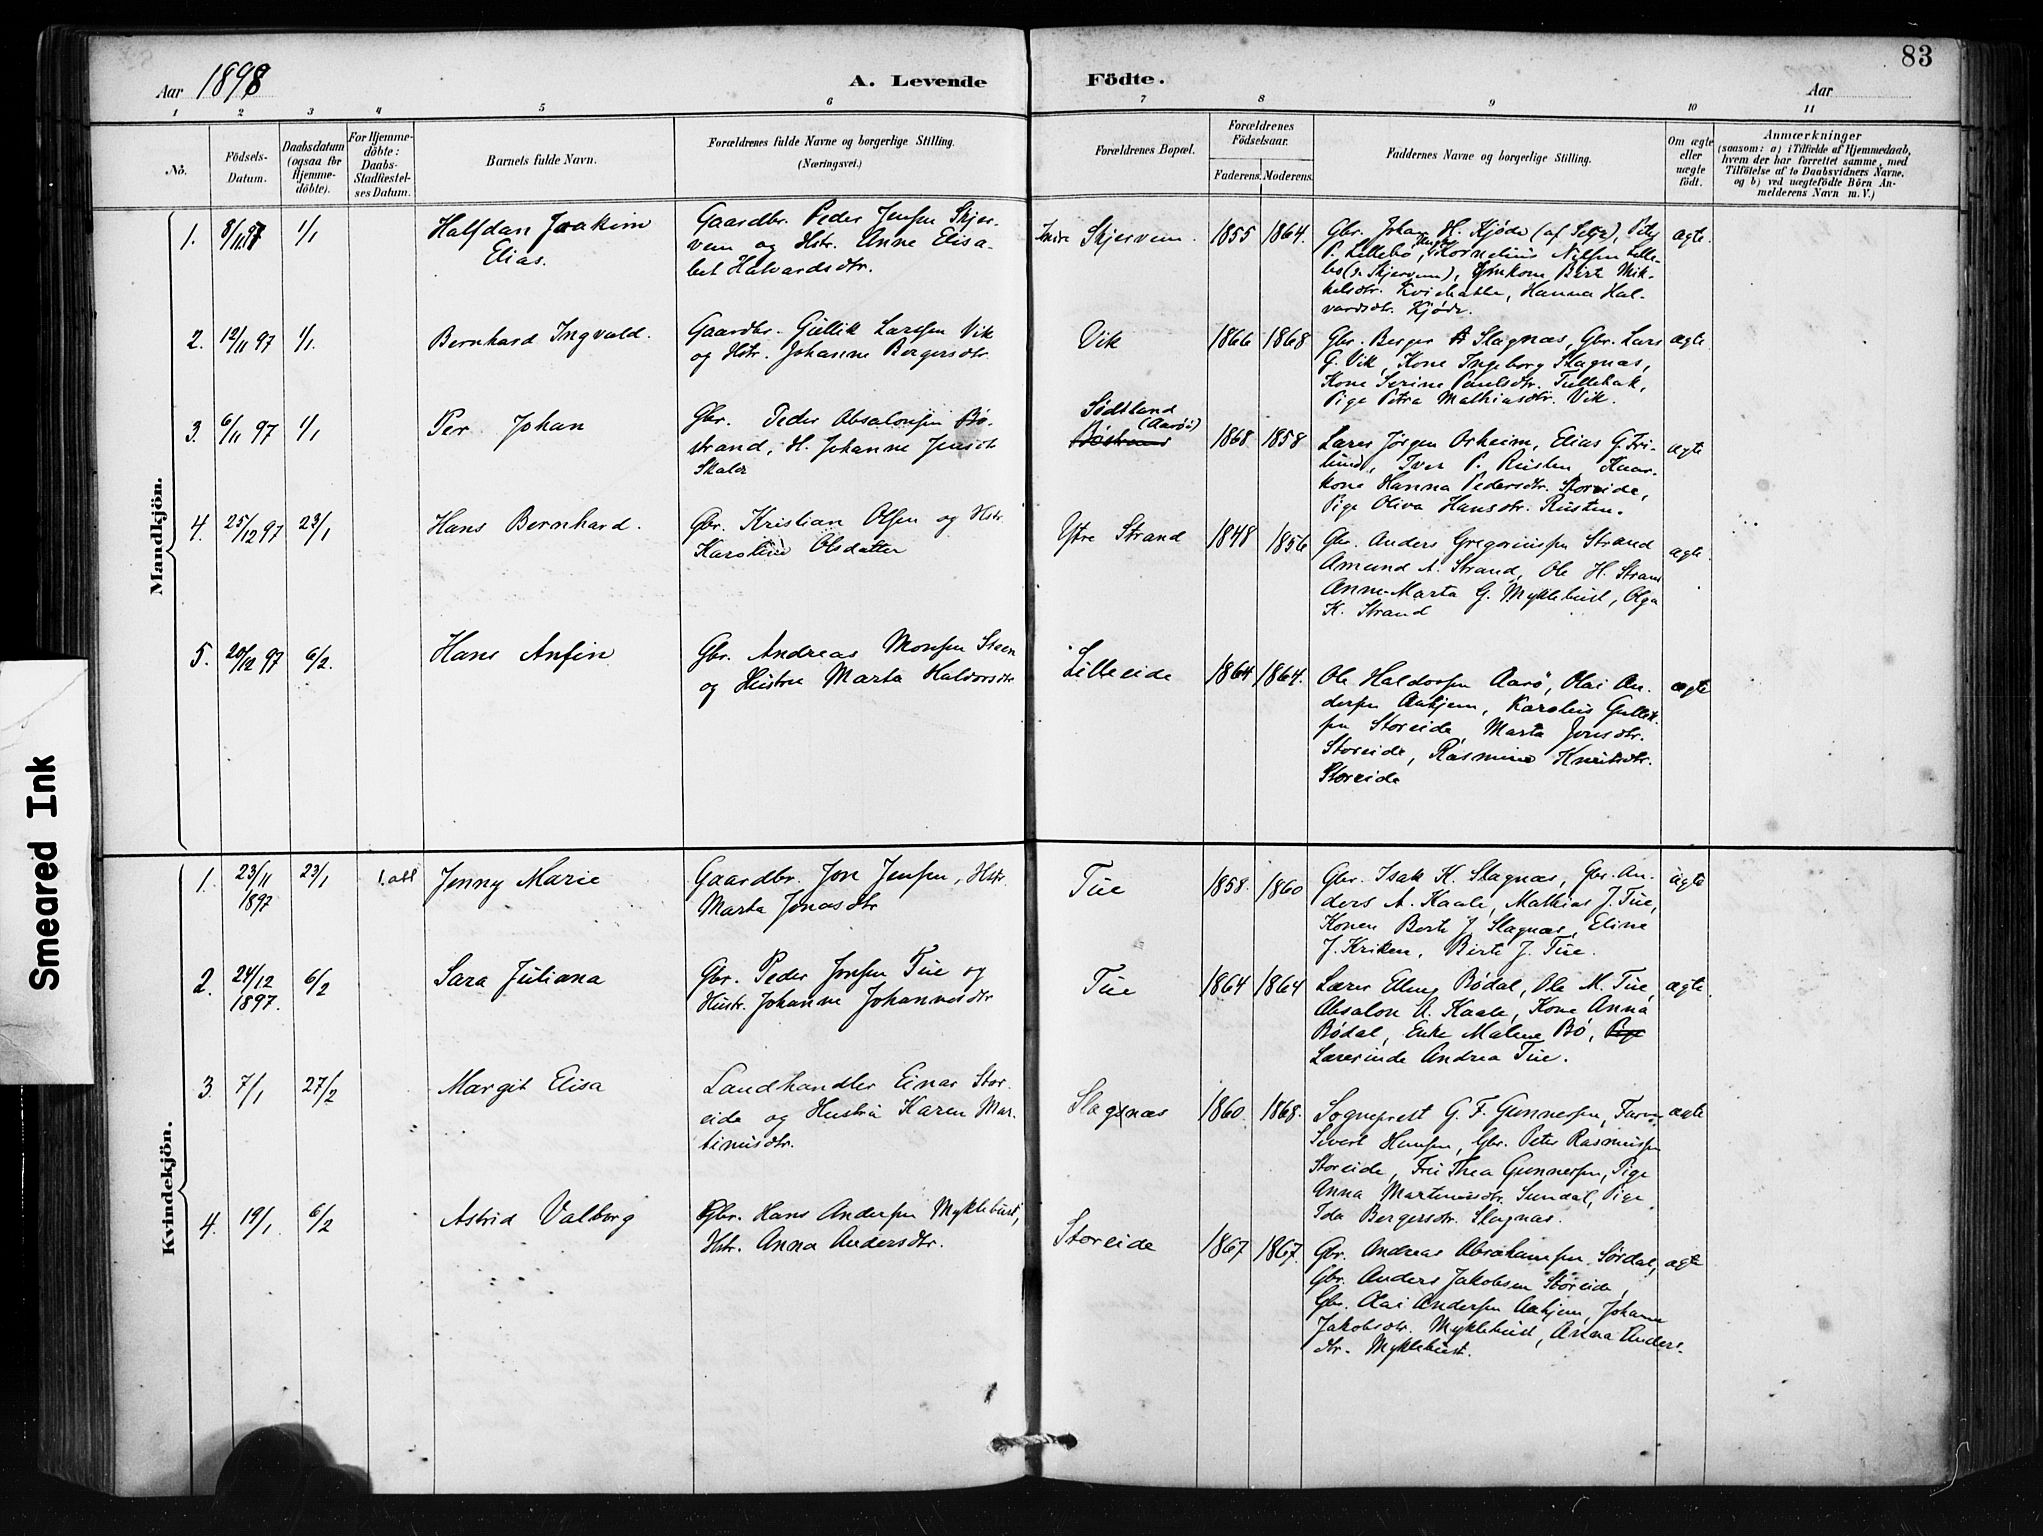 83
Aar 1898
A. Levende
Födte.
Aar
1 2 3 4 5 6 7 8 9 10 11
No.
Födsels-
Datum.
Daabsdatum
(ogsaa før
Hjemme-
döbte).
For Hjemme-
döbte:
Daabs-
Stadfæstel-
ses Datum.
Barnets fulde Navn.
Forældrenes fulde Navne og borgerlige Stilling.
(Næringsvei.)
Forældrenes Bopæl.
Forældrenes
Födselsaar.
Faderens. Moderens.
Faddernes Navne og borgerlige Stilling.
Om ægte
eller
uægte
födt.
Anmærkninger
(saasom: a) i Tilfælde af Hjemmedaab,
hvem der har forrettet samme, med
Tilföielse af to Daabsvidners Navne,
og b) ved uægtefödte Börn An-
melderens Navn m. V.)
Mandkjön.
1. 8/11 97 1/1
Halfdan Joakim
Elias.
Gaardbr. Peder Jensen Skjer-
vem og Hstr. Anne Elisa-
bet Halvardsdtr.
Indre Skjervem. 1855 1864.
Gbr. Johan H. Kjøde (af Selje), Peter
P. Lillebø, Kornelius Nilsen Lille-
bø (v. Skjervem), Gbrkone Berte Mik-
kelsdtr. , Hanna Hal-
vardsdtr. Kjøde.
ægte.
2. 12/11 97 1/1.
Bernhard Ingvald.
Gaardbr. Gullik Larssen Vik
og Hstr. Johanne Bergersdtr.
Vik 1866 1868
Gbr. Berger A Slagnæs, Gbr. Lars
G. Vik, Kone Ingeborg Slagnæs,
Kone Serine Paulsdtr. Tullebak,
Pige Petra Mathiasdtr. Vik.
ægte.
3. 6/11 97 1/1
Per Johan
Gbr. Peder Absalonsen Bø-
strand, H. Johanne Jensdtr
Skaler
Sødtland
(Aarøi)
Bøstrand 1868. 1858
Lærer Jörgen Orheim, Elias G. Fri-
lund, Iver P. Rusten, Kaar-
kone Hanna Pedersdtr. Storeide,
Pige Oliva Hansdtr. Rusten.
ægte
4. 25/12 97 23/1
Hans Bernhard.
Gbr. Kristian Olsen og Hstr.
Karoline Olsdatter
Ytre Strand 1848 1856
Gbr. Anders Gregoriussen Strand
Amund A. Strand, Ole H. Strand
Anne-Marta G. Myklebust, Olga
K. Strand
ægte.
5. 20/12 97 6/2.
Hans Anfin
Gbr. Andreas Monsen Steen
og Hustru Marta Haldorsdtr
Lilleeide 1864 1864.
Ole Haldorsen Aarø, Olai An-
dersen Aahjem, Karolus Gullik-
sen Storeide, Marta Jonsdtr.
Storeide, Rasmine Knutsdtr.
Storeide
ægte
Kvindekjön.
1. 23/11 1897 23/1 1. abl
Jenny Marie
Gaardbr. Jon Jensen, Hstr.
Marta Jonasdtr
Tue 1858. 1860
Gbr. Isak K. Slagnæs, Gbr. An-
ders A. Kaale, Mathias J. Tue,
Konen Berte J. Slagnæs, Eline
J. Kriken, Birte J. Tue.
ægte
2. 24/12 1897. 6/2
Sara Juliana
Gbr. Peder Jonsen Tue og
Hustr. Johanne Johannesdtr
Tue 1864 1864
Lærer Elling Bødal, Ole M. Tue,
Absalon A. Kaale, Kone Anna
Bødal, Enke Malene Bø, Pige
Lærerinde Andrea Tue.
ægte.
3. 7/1 27/2
Margit Elisa
Landhandler Einar Stor-
eide og Hustru Karen Mar-
tinusdtr.
Slagnæs 1860. 1868.
Sogneprest G. F. Gunnersen,
Sivert Hansen, Gbr. Peter Rasmussen
Storeide, Fru Thea Gunnersen, Pige
Anna Martinusdtr. Sundal, Pige
Ida Bergersdtr. Slagnæs.
ægte
4. 19/1 6/2
Astrid Valborg
Gbr. Hans Andersen Myklebust,
Hstr. Anna Andersdtr.
Storeide 1867 1867.
Gbr. Andreas Abrahamsen Sørdal,
Gbr. Anders Jakobsen Storeide,
Gbr. Olai Andersen Aahjem, Johanne
Jakobsdtr. Myklebust, Anna Anders-
dtr. Myklebust.
ægte
Smeared Ink